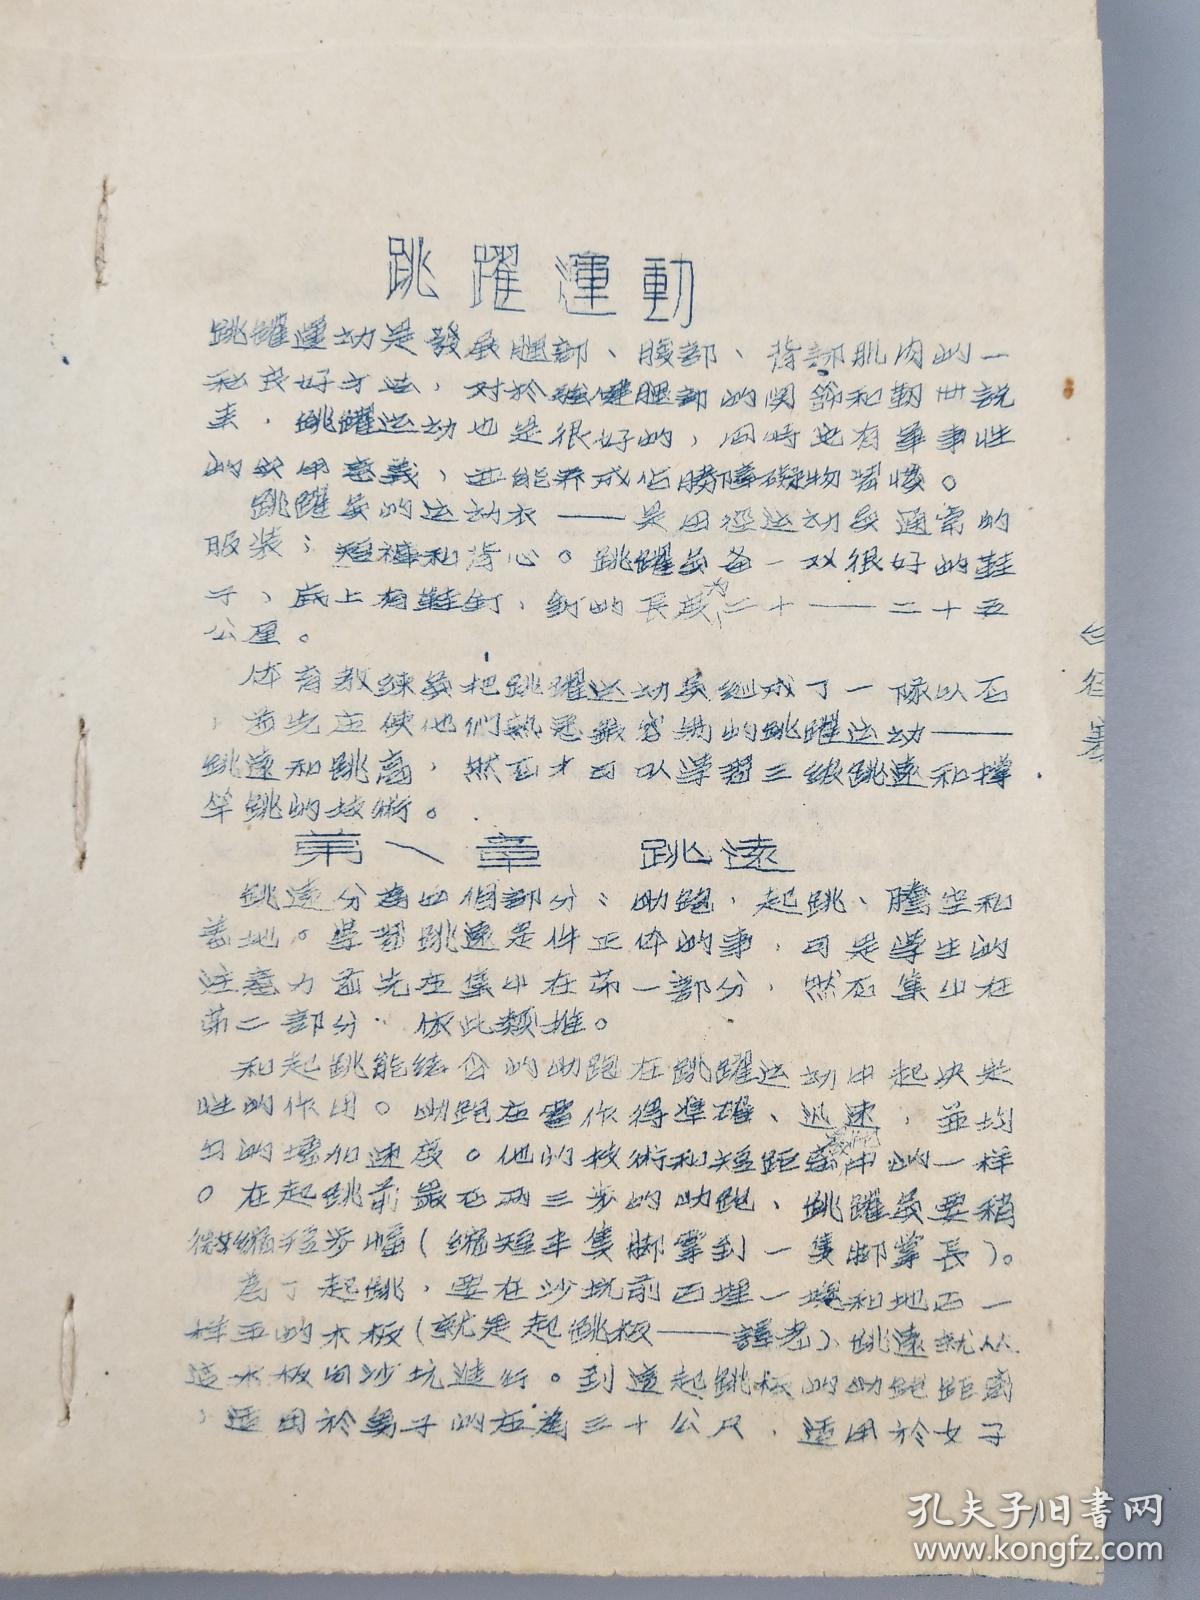 跳躍運動
跳躍運动是發展腿部、腹部、背部肌肉的一
种良好方法，对於強健腿部的関節和韌带説
来，跳躍运动也是很好的，同時也有軍事性
的实用意義，並能养成佔勝障碍物習慣。
跳躍員的运动衣——是田徑运动員通常的
服装；短褲和背心。跳躍員备一双很好的鞋
子、底上有鞋釘，釘的長度为二十——二十五
公厘。
体育教練員把跳躍运动員組成了一隊以后
，首先应使他們熟悉最容易的跳躍运动——
跳遠和跳高，然后才可以学習三級跳遠和撑
竿跳的技術。
第一章 跳遠
跳遠分為四個部分：助跑，起跳、騰空和
着地。学習跳遠是件正体的事，可是学生的
注意力首先应集中在第一部分，然后集中在
第二部分，依此類推。
和起跳能結合的助跑在跳躍运动中起决定
性的作用。助跑应當作得準確、迅速，並均
匀的增加速度。他的技術和短距离跑中的一样
。在起跳前最后两三步的助跑、跳躍員要稍
微縮短步幅（縮短半隻脚掌到一隻脚掌長）。
為了起跳，要在沙坑前面埋一塊和地面一
样平的木板（就是起跳板——譯者）、跳遠就从
這木板向沙坑進行。到達起跳板的助跑距离
，适用於男子的应為三十公尺，适用於女子
1
田径赛
孔夫子旧书网
www.kongfz.com